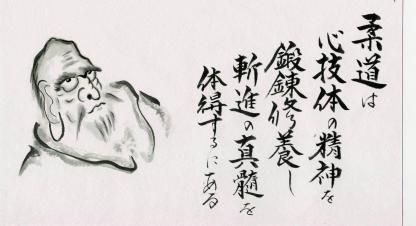 柔道は
心技体の精神を
鍛錬修養し
斬進の真髄を
体得するにある